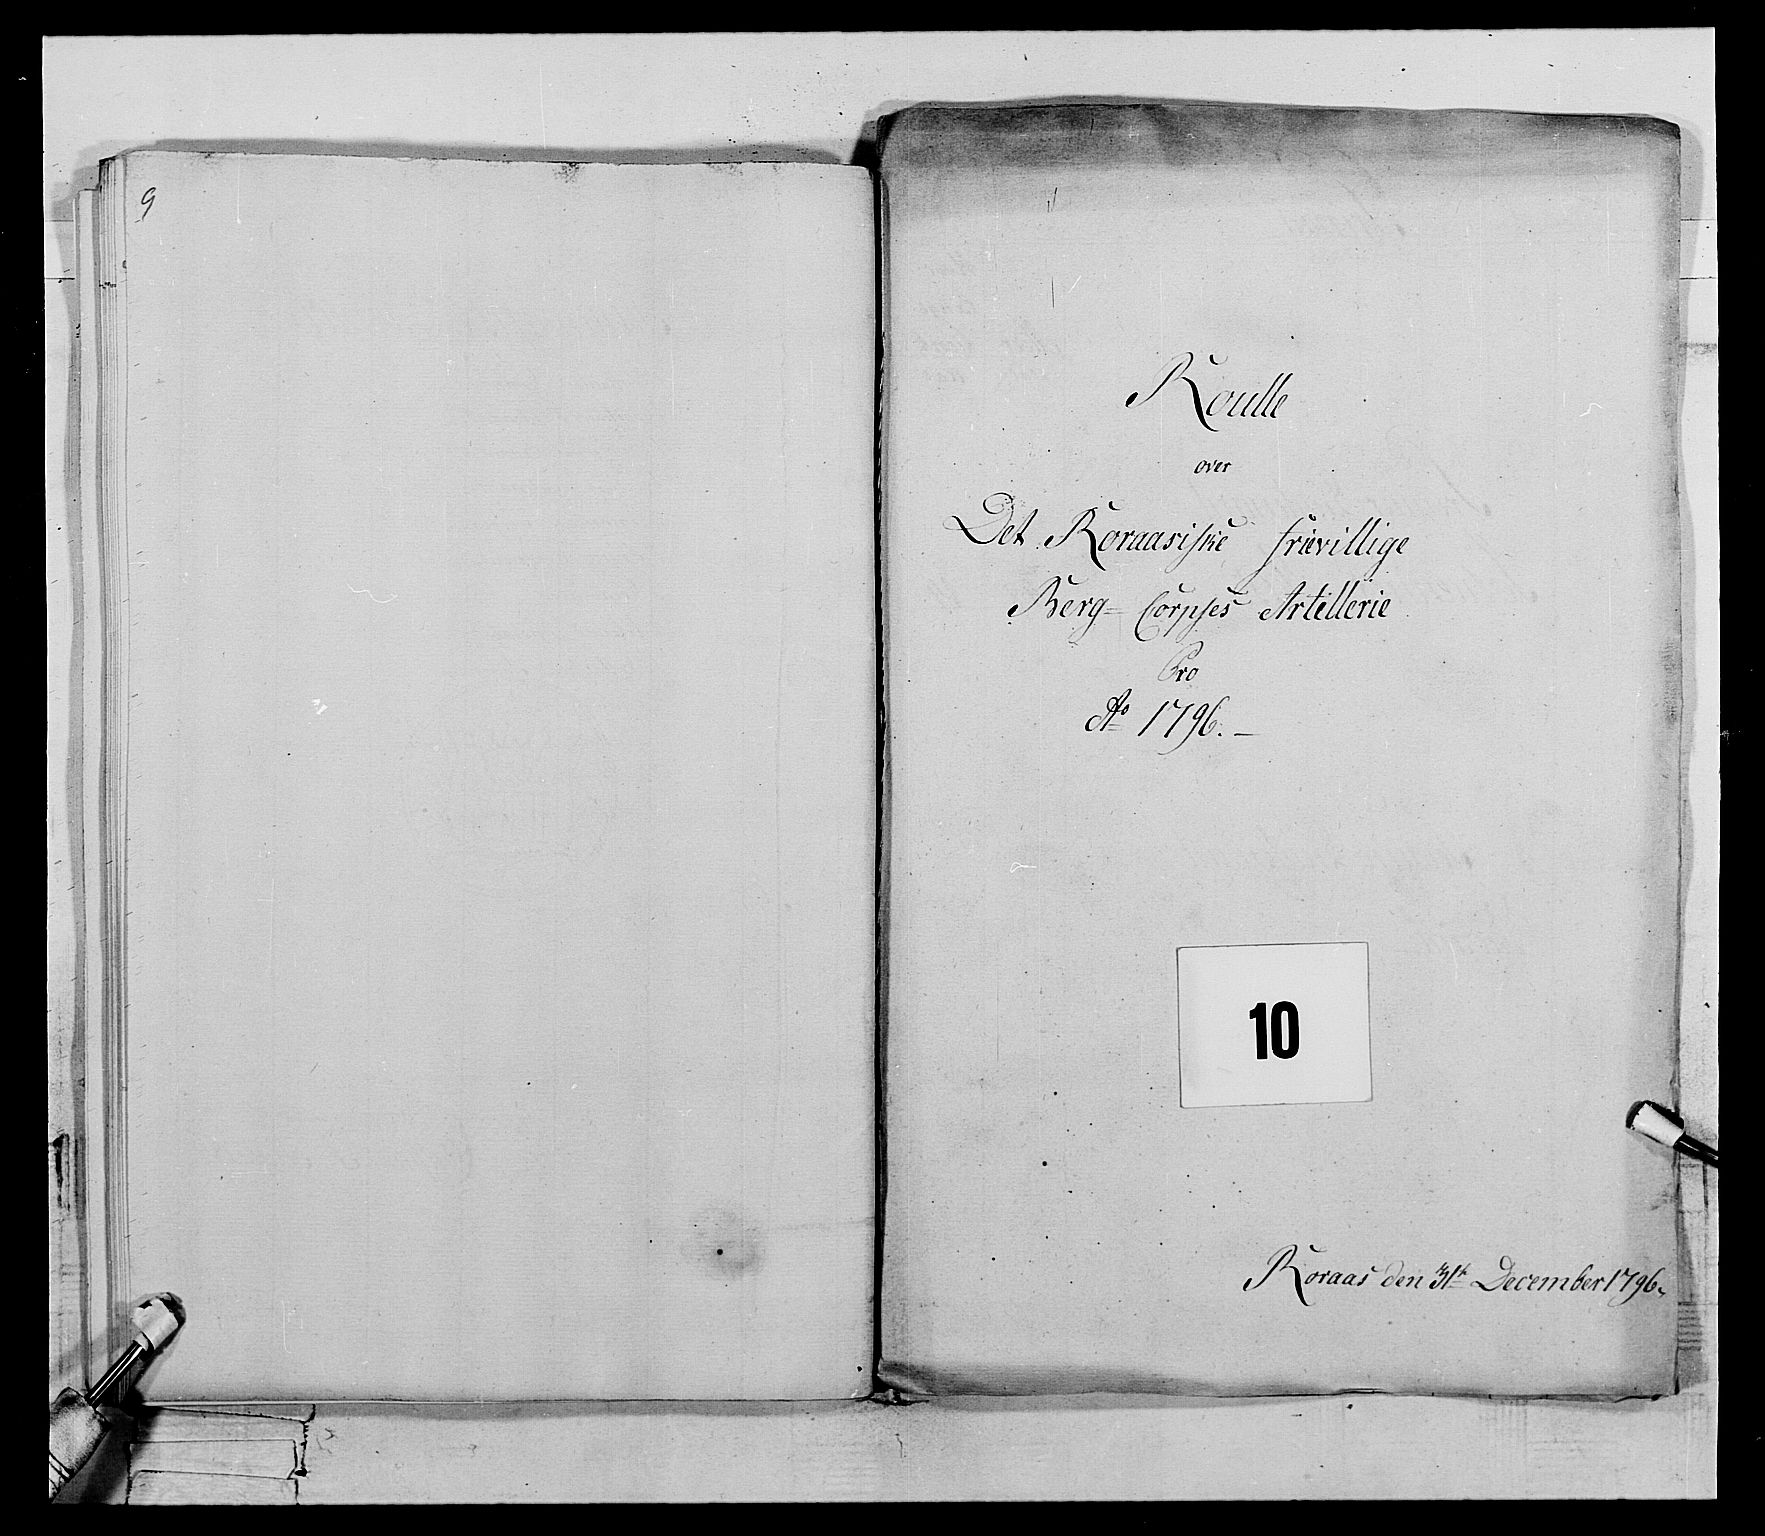 9
Roulle
over
Det Roraasiske frievillige
Berg= Corpses Artillerie
Pro
Ao 1796. _
10
Roraas den 31te December 1796.